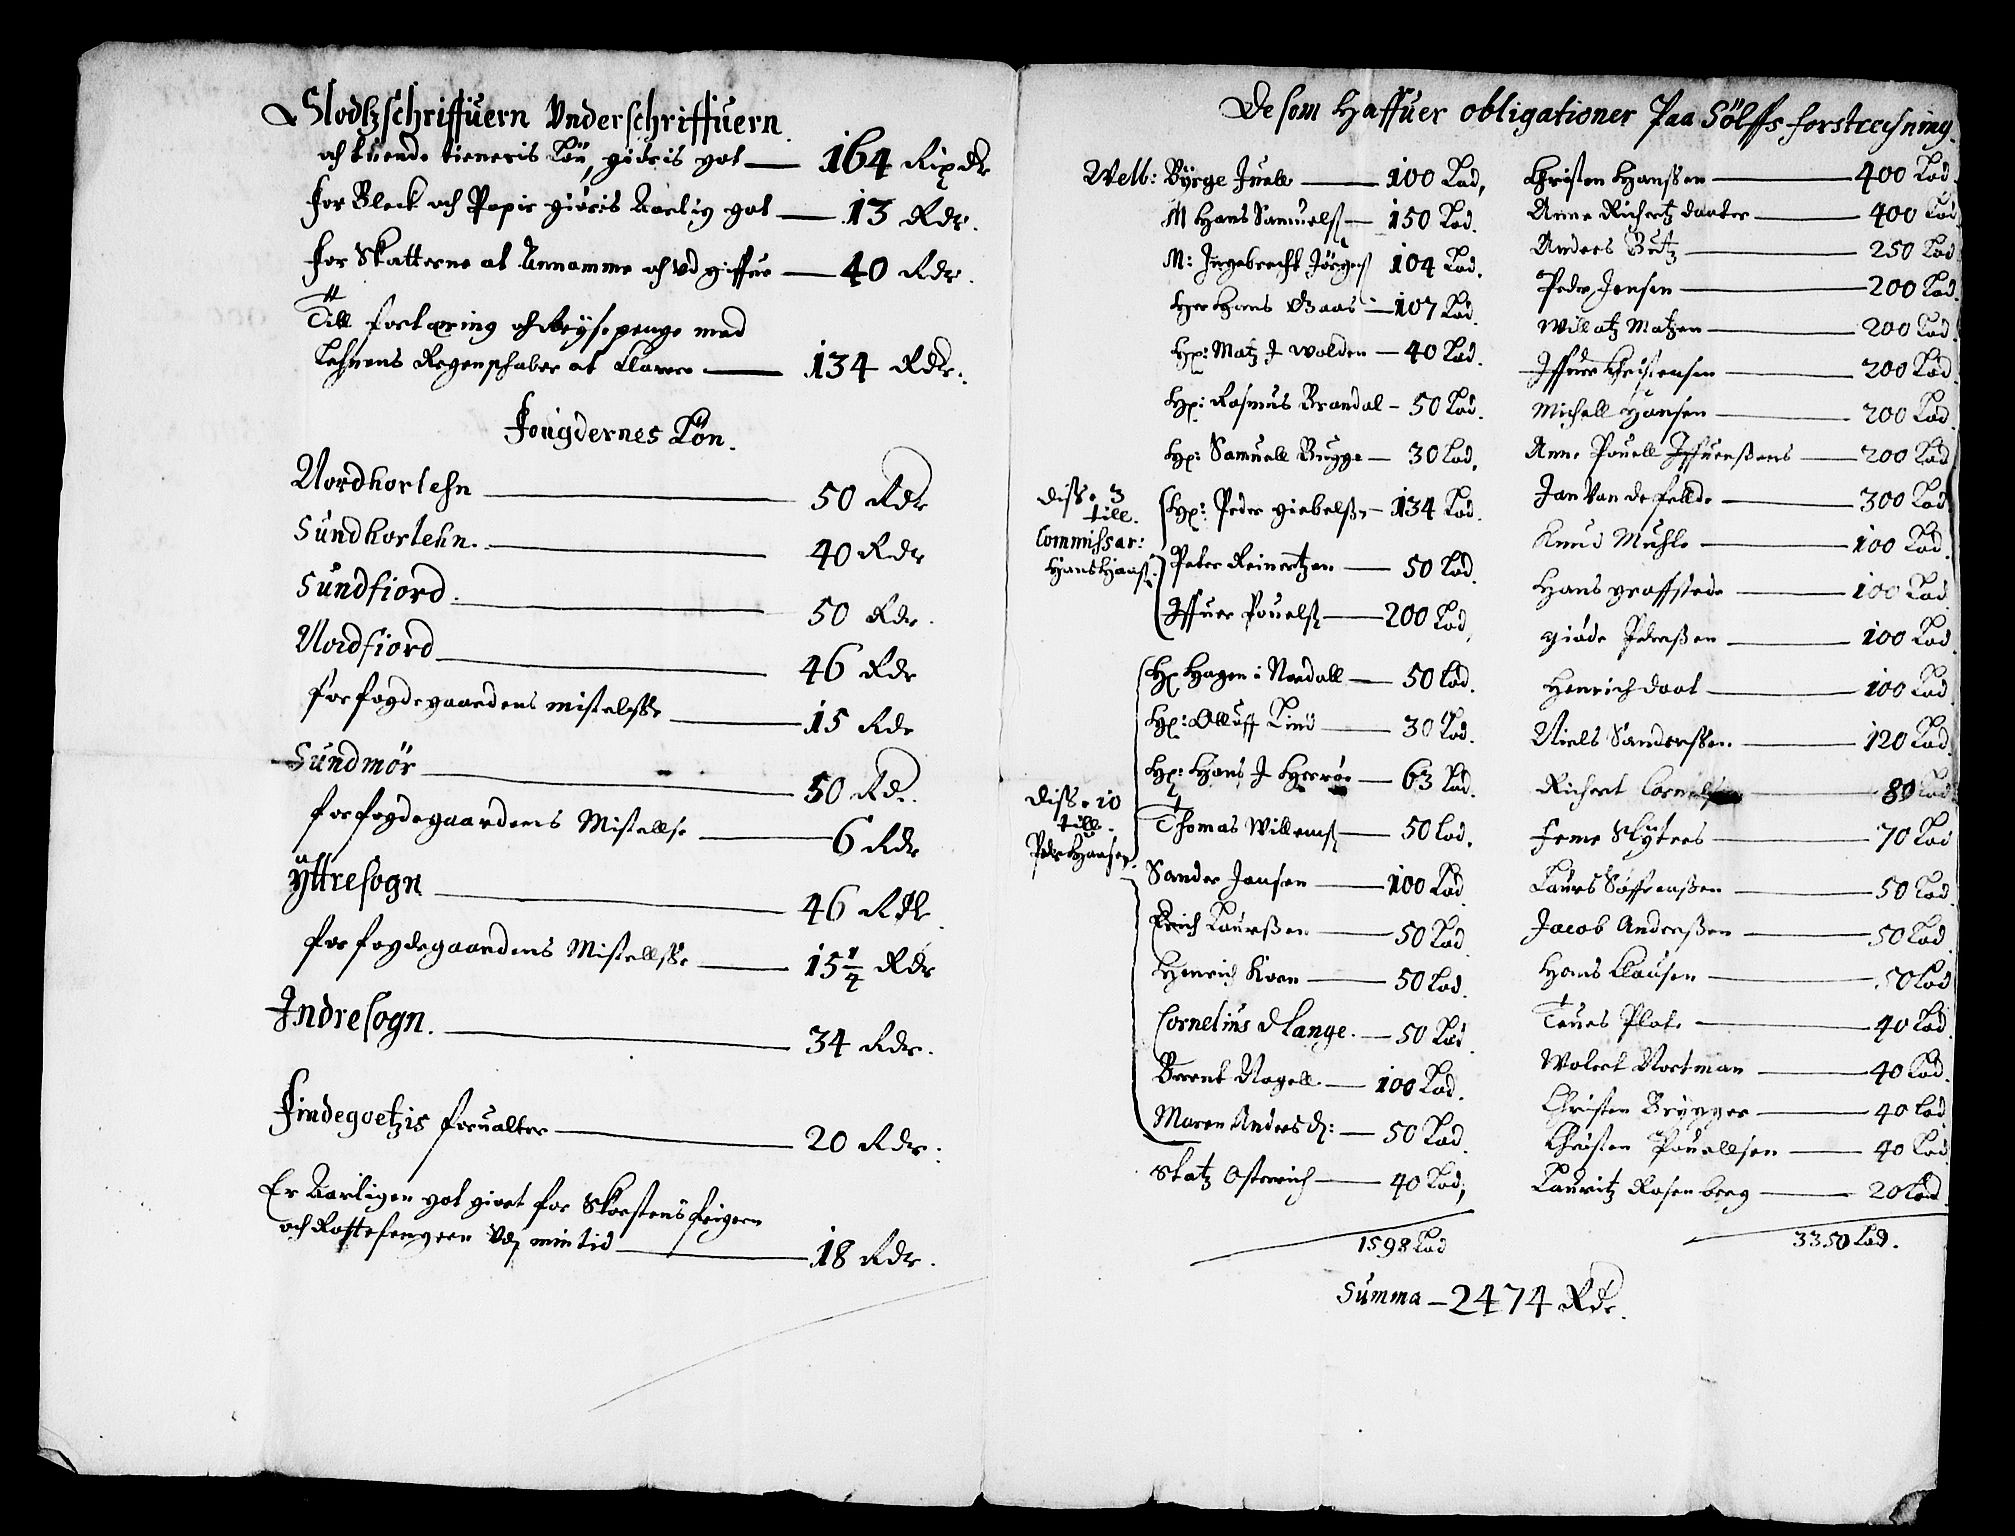 Slodtzschriffuern Underschriffuern
och tuende tieneris Løn, giøris got — 164 Rixdr
for Bleck och Papir giøris Aarlig got — 13 Rdr.
for Skatterne at Annamme och Ud giffue — 40 Rdr.
Till fortæring och Reyse penge med
Lehnens Regenschaber at Klarere — 134 Rdr.
Fougdernes Løn.
Nordhorlehn — 50 Rdr
Sundhorlehn. — 40 Rdr
Sundfiord. — 50 Rdr.
Nordfiord — 46 Rdr
for fogdegaardens mistelsse — 15 Rdr
Sundmør — 50 Rd.
for fogdegaardens Mistellse — 6 Rdr
Yttresogn — 46 Rdr.
for fogdegaardens Mistellsse — 15 1/4 Rdr
Indresogn. — 34 Rdr.
Findegoetzis forualter — 20 Rdr.
Er Aarligen got giort for Skorstensfeigern
och Rottefengern Udj min tid — 18 Rdr.
De som Haffuer obligationer Paa Sølffs forstrechning.
Welb: Byrge Juell — 100 Lod,
M Hans Samuelß — 150 Lod.
M: Ingebrecht Jørgenß 104 Lod.
Her Hans Gaas — 107 Lod.
Hr: Matz J Wolden — 40 Lod.
Hr: Rasmus Brandal — 50 Lod.
Hr: Samuell Bugge — 30 Lod.
Disse 3
till.
Commissar:
Hans Hansß.
Hr: Peder Giebelß. — 134 Lod.
Peter Reinertzen — 50 Lod.
Iffuer Pouelß — 200 Lod,
Disse 10
till.
Peder Hansen.
Hr Hagen i Nordall — 50 Lod.
Hr: Olluff Lind — 30 Lod.
Hr: Hans J Herrøe — 63 Lod.
Thomas Willemß — 50 Lod.
Sander Jansen — 100 Lod
Erich Laurßen — 50 Lod
Henrich Kven — 50 Lod.
Cornelius d Lange. — 50 Lod.
Berent Nagell — 100 Lod.
Maren Anders D: — 50 Lod.
Statz Osterrich — 40 Lod;
1598 Lod
Christen Hanssen — 400 Lod.
Anne Richertz daater — 400 Lod
Anders Butz — 250 Lod
Peder Jensen — 200 Lod.
Willatz Matzen — 200 Lod.
Iffuer Christensen — 200 Lod.
Michell Hansen — 200 Lod.
Anne Pouell Iffuerßens — 200 Lod
Jan Van de Fellde — 300 Lod
Knud Muhle — 100 Lod.
Hans graffstede — 100 Lod
giøde Pedersßen — 100 Lod.
Henrich daat — 100 Lod
Niels Sanderssen — 120 Lod.
Richert — 80 Lod
Feme Slyters — 70 Lod
Laurs Søffrenßen — 50 Lod.
Jacob Anderßen — 50 Lod.
Hans Clausen — 50 Lod
Teues Plate — 40 Lod
Wolert Nortman — 40 Lod.
Christen Brygger — 40 Lod
Christen Pouellsen — 40 Lod
Lauritz Rosenberg — 20 Lod.
3350 Lod.
Summa — 2474 Rdr.